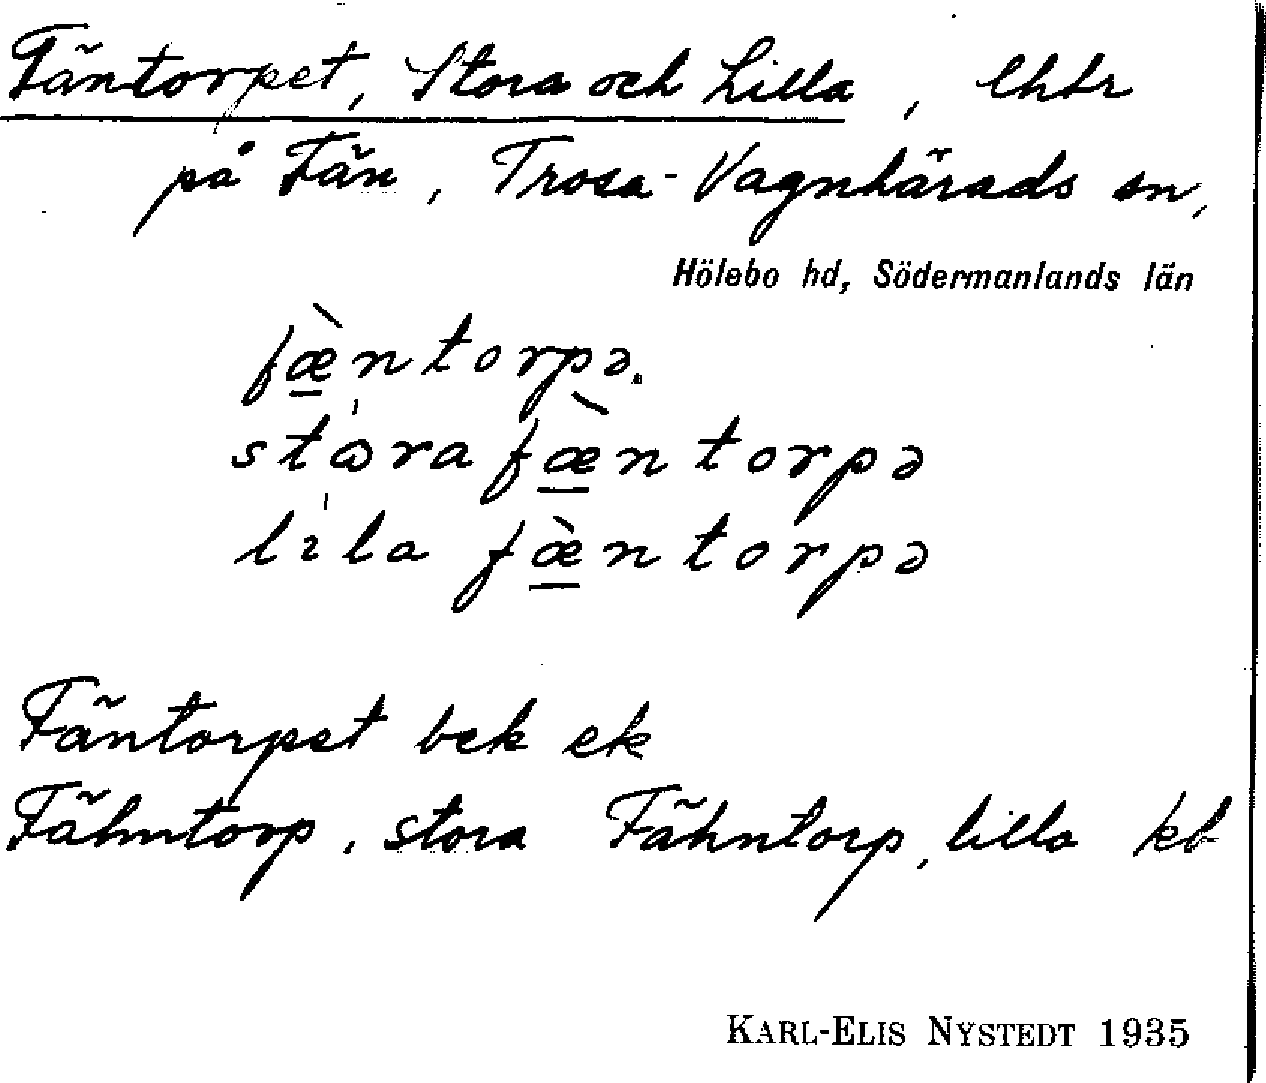 Fäntorpet, Stora och Lilla, lhtr
på Fän, Trosa-Vagnhärads sn,
Hölebo hd, Södermanlands län
fæ̀ntorpə.
stɷ́ra fæ̀ntorpə
líla fæ̀ntorpə
Fäntorpet bek ek
Fähntorp, stora Fähntorp, lilla kb
KARL-ELIS NYSTEDT 1935